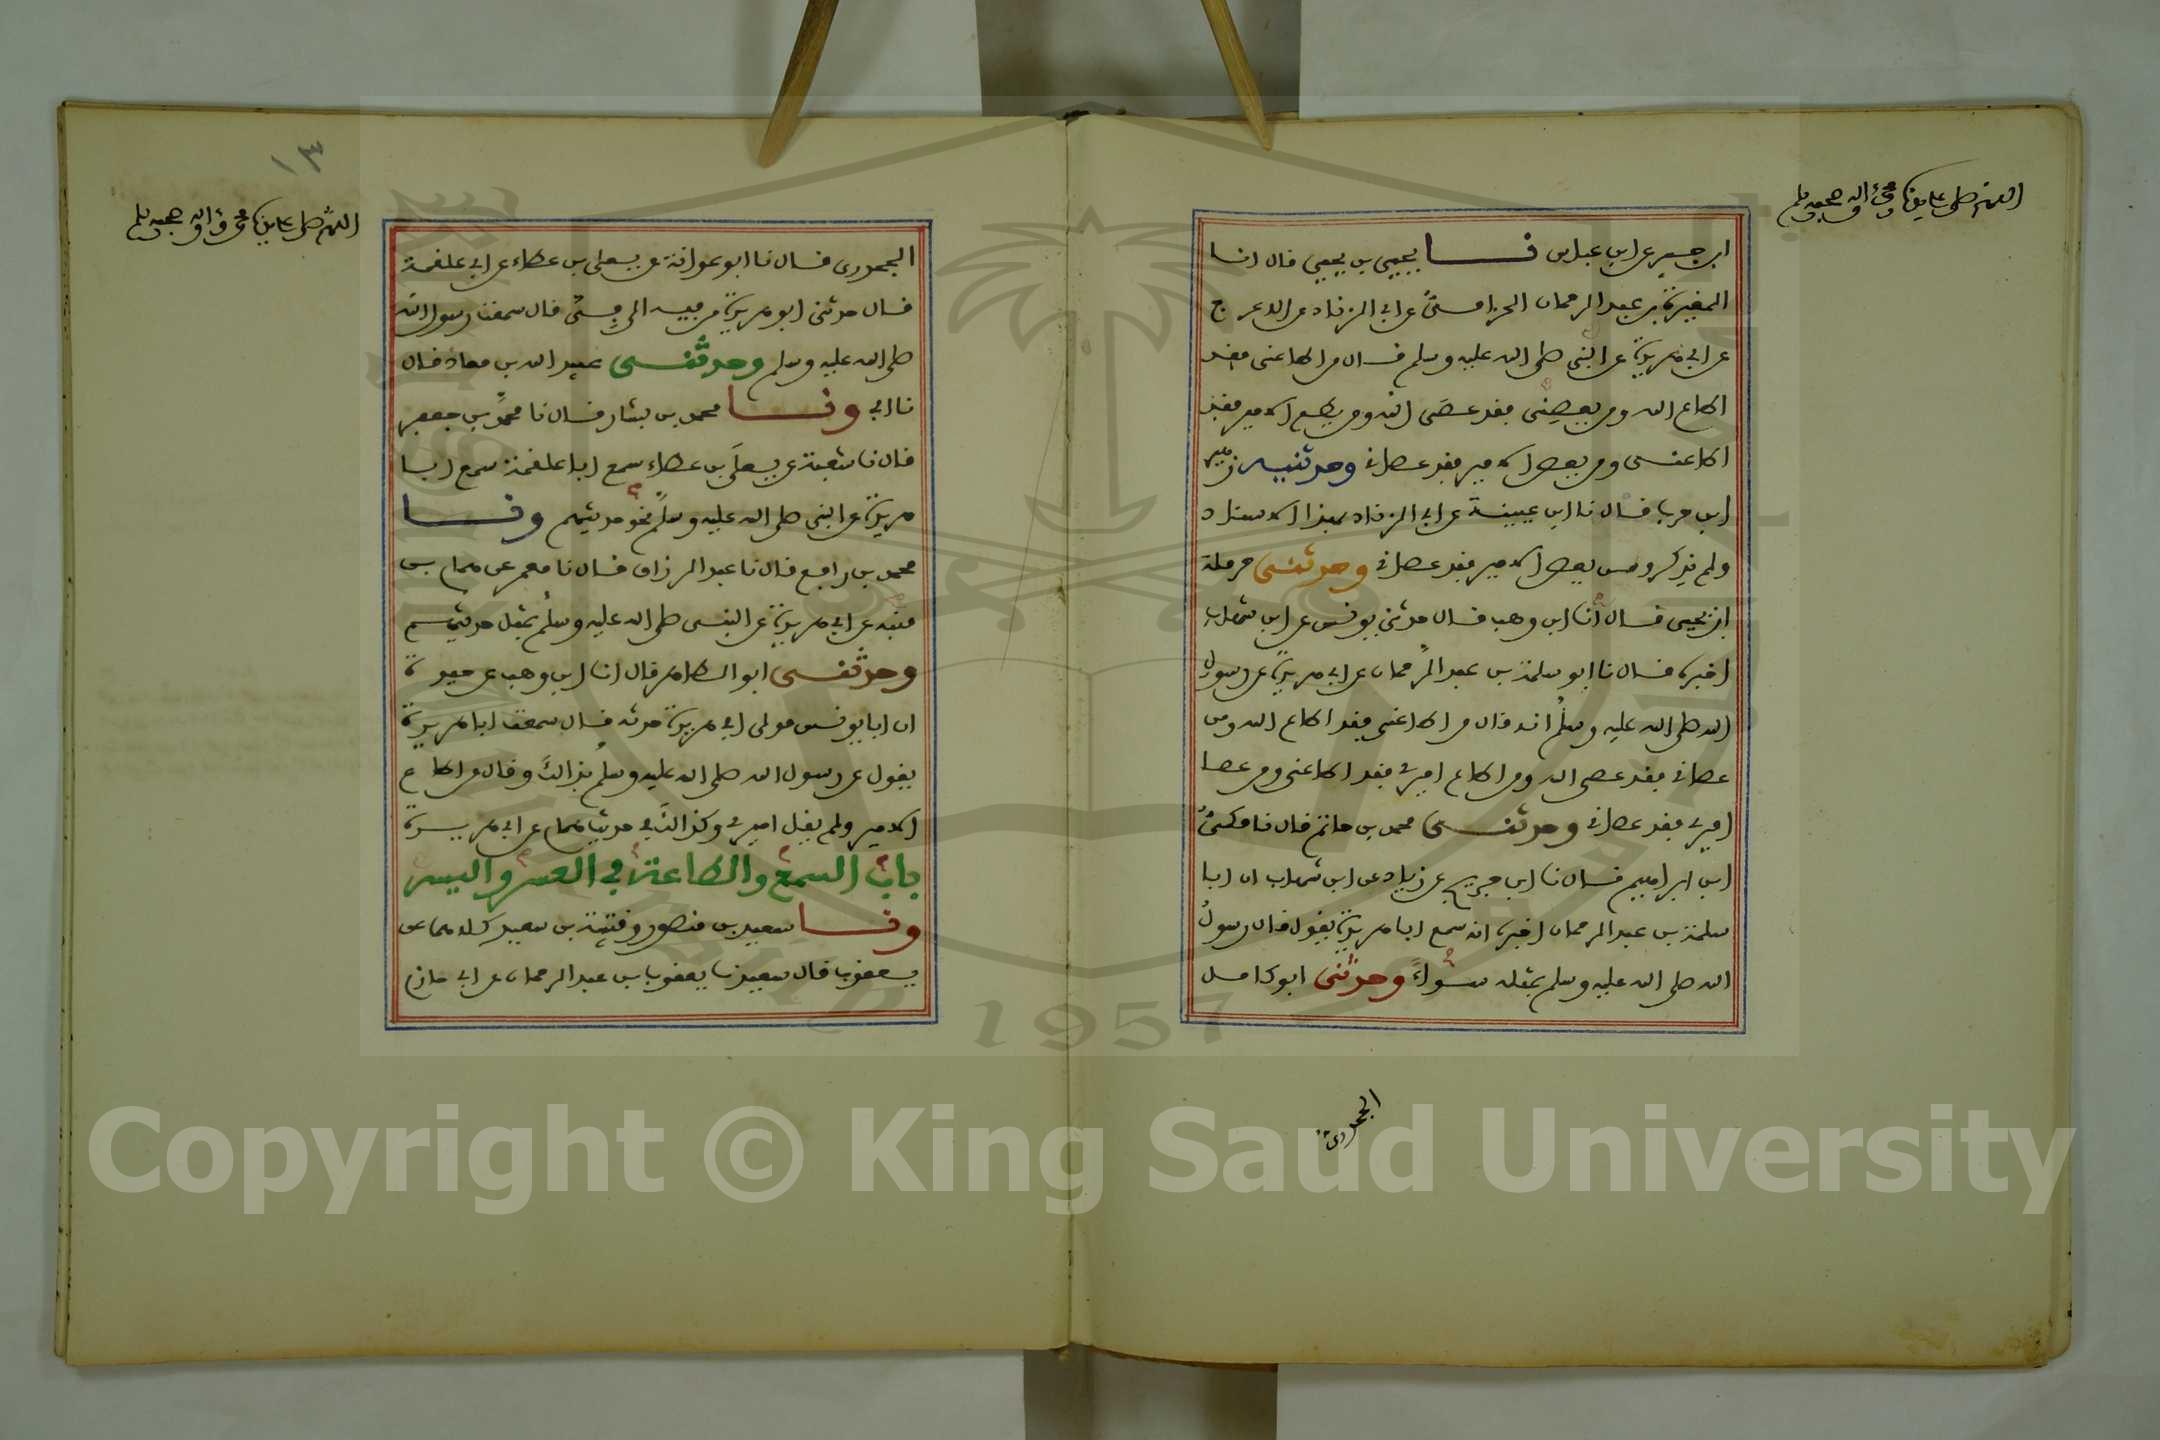 اللهم صل على سيدنا محمد وآله وصحبه وسلم
ابن جبير عن ابن عباس نا يحيى بن يحيى قال انا
المغيرة بن عبد الرحمان الحزامي عن ابي الزناد عن الاعرج
عن ابي هريرة عن النبي صلى الله عليه وسلم قال من اطاعني فقد
اطاع الله ومن يعصني فقد عصى الله ومن يطع الامير فقد
اطاعني ومن يعص الامير فقد عصاني وحدثنيه زهير
ابن حرب قال نا ابن عيينة عن ابي الزناد بهذا الاسناد
ولم يذكر ومن يعص الامير فقد عصاني وحدثني حرملة
ابن يحيى قال انا ابن وهب قال حدثني يونس عن ابن شهاب
اخبره قال نا ابو سلمة بن عبد الرحمان عن ابي هريرة عن رسول
الله صلى الله عليه وسلم انه قال من اطاعني فقد اطاع الله ومن
عصاني فقد عصى الله ومن اطاع اميري فقد اطاعني ومن عصا
اميري فقد عصاني وحدثني محمد بن حاتم قال نا مكي
ابن ابراهيم قال نا ابن جريج عن زياد عن ابن شهاب ان ابا
سلمة بن عبد الرحمان اخبره انه سمع ابا هريرة يقول قال رسول
الله صلى الله عليه وسلم بمثله سواء وحدثني ابو كامل
الجحدري
١٣
اللهم صل على سيدنا محمد وآله وصحبه وسلم
الجحدري قال نا ابو عوانة عن يعلى بن عطاء عن ابي علقمة
قال حدثني ابو هريرة من فيه الى في قال سمعت رسول الله
صلى الله عليه وسلم وحدثني عبيد الله بن معاذ قال
نا ابي ونا محمد بن بشار قال نا محمد بن جعفر
قال نا شعبة عن يعلى بن عطاء سمع ابا علقمة سمع ابا
هريرة عن النبي صلى الله عليه وسلم نحو حديثهم ونا
محمد بن رافع قال نا عبد الرزاق قال نا معمر عن همام بن
منبه عن ابي هريرة عن النبي صلى الله عليه وسلم بمثل حديثهم
وحدثني ابو الطاهر قال انا ابن وهب عن حيوة
ان ابا يونس مولى ابي هريرة حدثه قال سمعت ابا هريرة
يقول عن رسول الله صلى الله عليه وسلم بذالك وقال من اطاع
الامير ولم يقل اميري وكذالك في حديث همام عن ابي هريرة
باب السمع والطاعة في العسر واليسر
ونا سعيد بن منصور وقتيبة بن سعيد كلاهما عن
يعقوب قال سعيد نا يعقوب بن عبد الرحمان عن ابي حازم
1957
Copyright © King Saud University